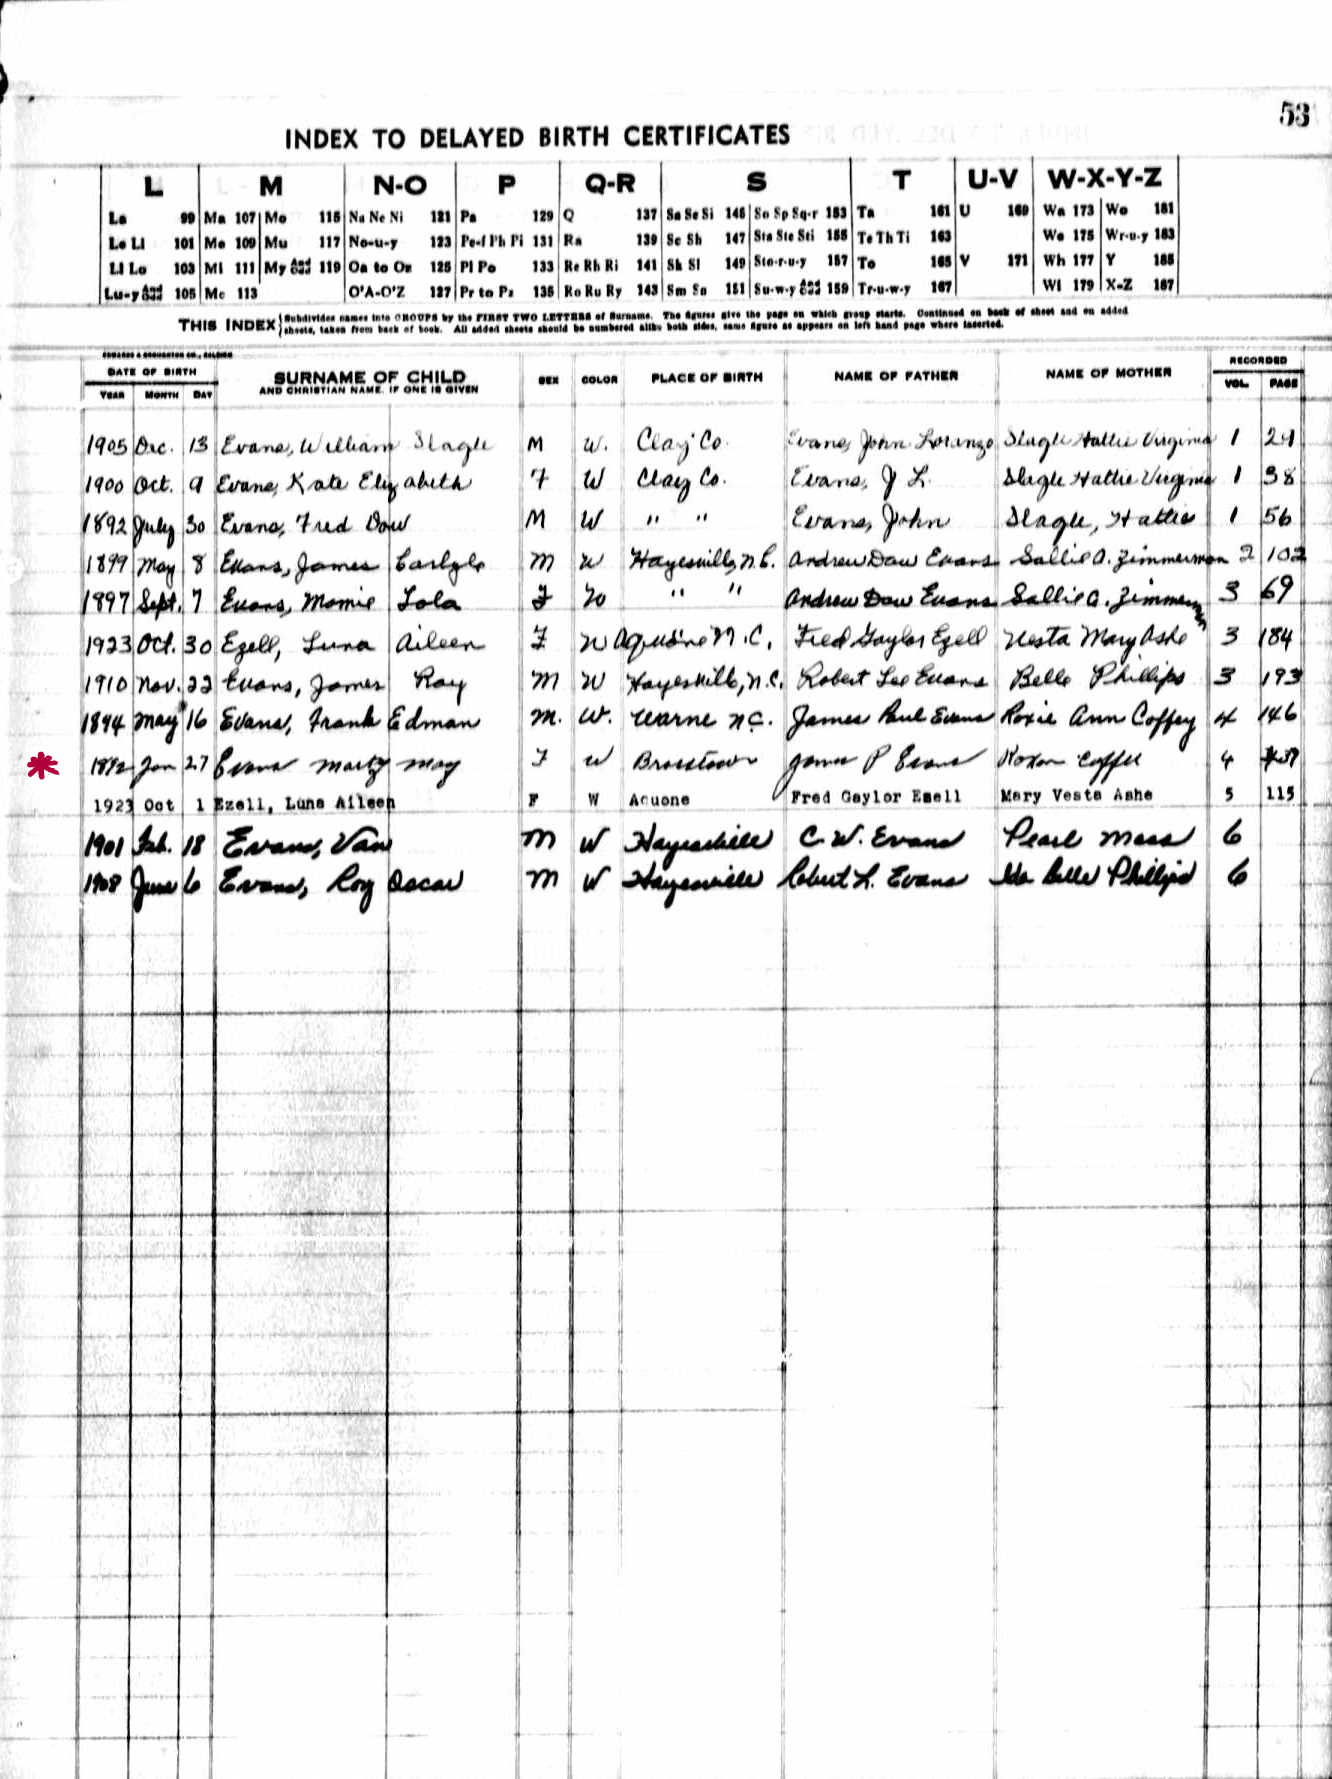 53
INDEX TO DELAYED BIRTH CERTIFICATES
L M N-O P Q-R S T U-V W-X-Y-Z
La 99 Ma 107 Mo 115 Na Ne Ni 121 Pa 129 Q 137 Sa Se Si 145 So Sp Sq-r 153 Ta 161 U 169 Wa 173 Wo 181
Le Li 101 Me 109 Mu 117 No-u-y 123 Pe-f Ph Pi 131 Ra 139 Sc Sh 147 Sta Ste Sti 155 Te Th Ti 163 We 175 Wr-u-y 183
Ll Lo 103 Mi 111 My 119 Oa to Oz 125 Pl Po 133 Re Rh Ri 141 Sk Sl 149 Sto-r-u-y 157 To 165 V 171 Wh 177 Y 185
Lu-y 105 Mc 113 O'A-O'Z 127 Pr to Pz 135 Ro Ru Ry 143 Sm Sn 151 Su-w-y 159 Tr-u-w-y 167 Wi 179 X-Z 187
THIS INDEX Subdivides names into GROUPS by the FIRST TWO LETTERS of Surname. The figures give the page on which group starts. Continued on back of sheet and on added
sheets, taken from back of book. All added sheets should be numbered alike both sides, same figure as appears on left hand page where inserted.
DATE OF BIRTH SURNAME OF CHILD SEX COLOR PLACE OF BIRTH NAME OF FATHER NAME OF MOTHER RECORDED
YEAR MONTH DAY AND CHRISTIAN NAME, IF ONE IS GIVEN VOL. PAGE
1905 Dec. 13 Evans, William Slagle M W. Clay Co. Evans, John Lorenzo Slagle Hattie Virginia 1 21
1900 Oct. 9 Evans, Kate Elizabeth F W Clay Co. Evans, J L. Slagle Hattie Virginia 1 38
1892 July 30 Evans, Fred Dow M W " " Evans, John Slagle, Hattie 1 56
1899 May 8 Evans, James Carlyle M W Hayesville, N.C. Andrew Daw Evans Sallie A. Zimmerman 2 102
1897 Sept. 7 Evans, Mamie Lola F W " " Andrew Daw Evans Sallie A. Zimmerman 3 69
1923 Oct. 30 Ezell, Luna Aileen F W Aquone N.C. Fred Gaylor Ezell Vesta Mary Ashe 3 184
1910 Nov. 22 Evans, James Ray M W Hayesville, N.C. Robert Lee Evans Belle Phillips 3 193
1894 May 16 Evans, Frank Edman M. W. Warne N.C. James Paul Evans Roxie Ann Coffey 4 146
* Jan 27 Evans May F W Brasstown James P Evans 4
1923 Oct 1 Ezell, Luna Aileen F W Aquone Fred Gaylor Ezell Mary Vesta Ashe 5 115
1901 Feb. 18 Evans, Van M W Hayesville C. W. Evans Pearl Moss 6
1908 June 6 Evans, Roy Oscar M W Hayesville Robert L. Evans Ida Belle Phillips 6